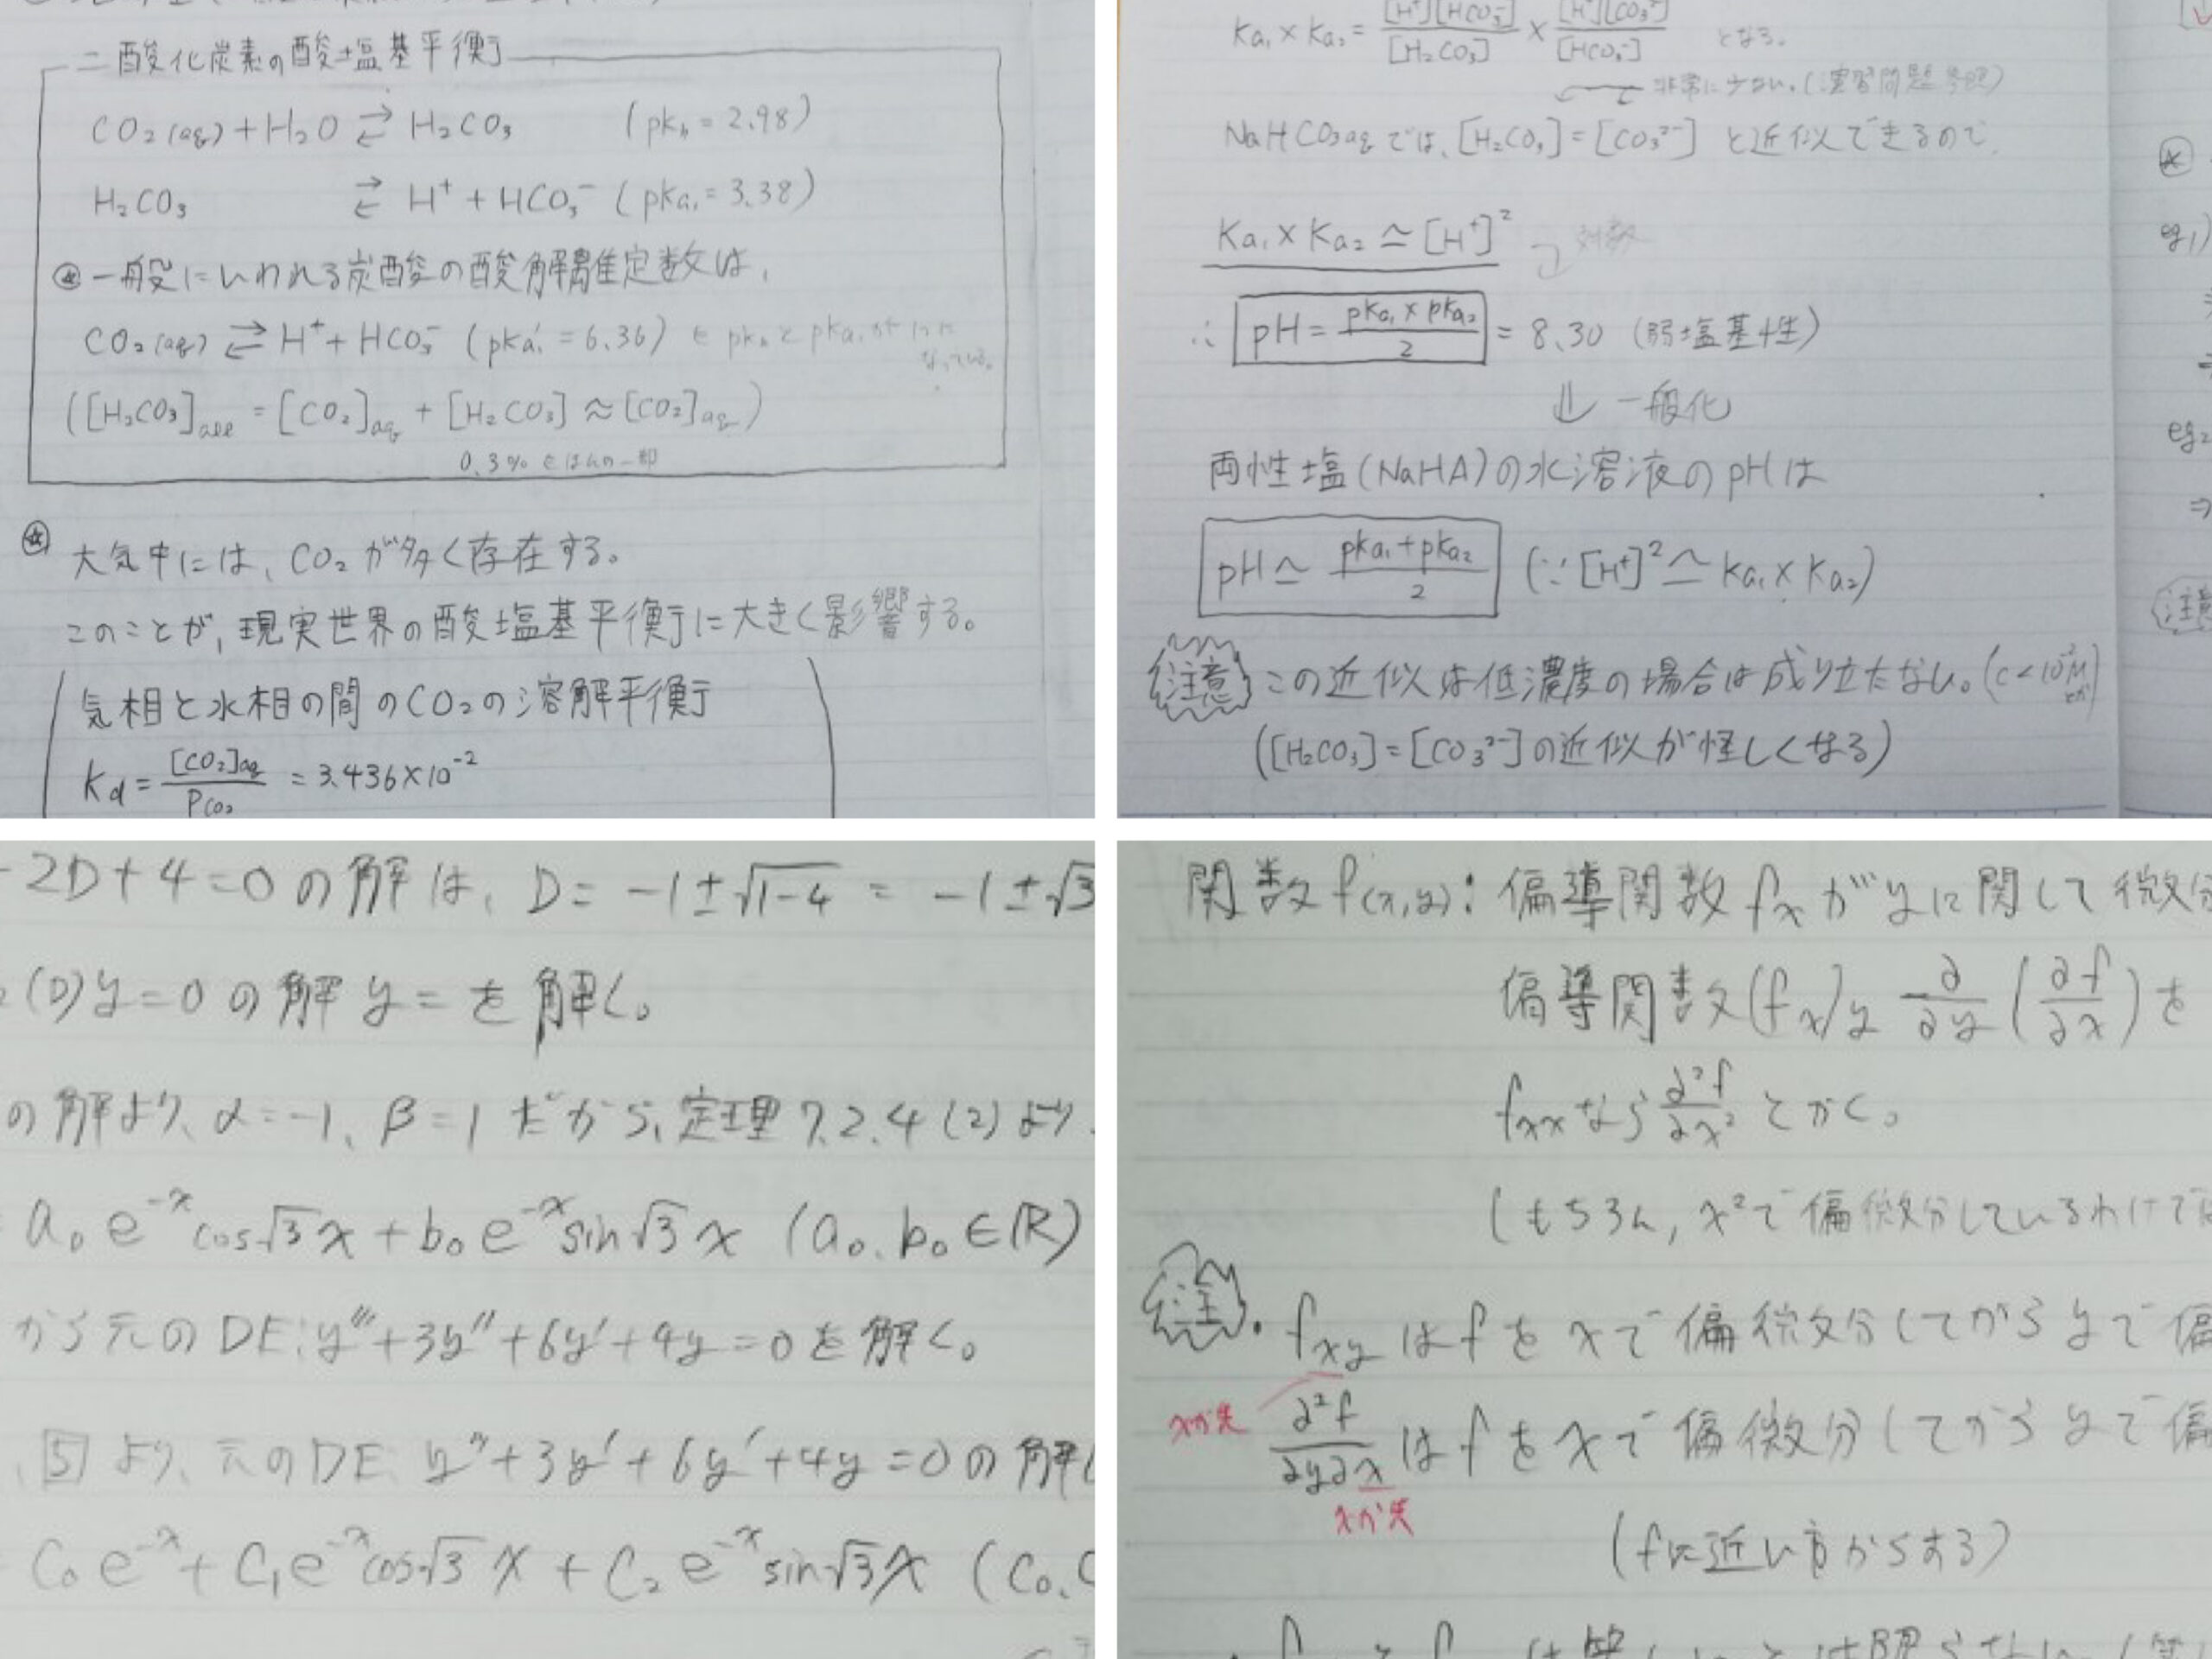 二酸化炭素の酸塩基平衡
CO₂(aq) + H₂O ⇄ H₂CO₃ (pKh = 2.98)
H₂CO₃ ⇄ H⁺ + HCO₃⁻ (pKa₁ = 3.38)
一般にいわれる炭酸の酸解離定数は、
CO₂(aq) ⇄ H⁺ + HCO₃⁻ (pKa₁' = 6.36) ← pKhとpKa₁が1つになっている。
([H₂CO₃]all = [CO₂]aq + [H₂CO₃] ≈ [CO₂]aq)
0.3% ←ほんの一部
大気中には、CO₂が多く存在する。
このことが、現実世界の酸塩基平衡に大きく影響する。
気相と水相の間のCO₂の溶解平衡
Kd = [CO₂]aq / Pco₂ = 3.436×10⁻²
Ka₁ × Ka₂ = [H⁺][HCO₃⁻] / [H₂CO₃] × [H⁺][CO₃²⁻] / [HCO₃⁻] となる。
非常に少ない。(演習問題参照)
NaHCO₃aqでは、[H₂CO₃] = [CO₃²⁻] と近似できるので、
Ka₁ × Ka₂ ≃ [H⁺]² 対数
∴ pH = pKa₁ × pKa₂ / 2 = 8.30 (弱塩基性)
⇓ 一般化
両性塩(NaHA)の水溶液のpHは
pH ≃ pKa₁ + pKa₂ / 2 (∵ [H⁺]² ≃ Ka₁ × Ka₂)
注意 この近似は低濃度の場合は成り立たない。(C < 10⁻³M
([H₂CO₃] = [CO₃²⁻]の近似が怪しくなる)
eg1)
eg2
⇒
注意
-2D+4=0 の解は、D = -1±√1-4 = -1±√3
(D)y=0 の解 y= を解く。
の解より、α=-1、β=1 だから、定理7.2.4(2)より
a₀e⁻ˣcos√3x + b₀e⁻ˣsin√3x (a₀、b₀∈ℝ)
から元のDE:y'''+3y''+6y'+4y=0を解く。
5 より、元のDE y''+3y'+6y'+4y=0の解
C₀e⁻ˣ + C₁e⁻ˣcos√3x + C₂e⁻ˣsin√3x (C₀、C
関数f(x,y):偏導関数 fx がyに関して微分
偏導関数(fx)y ∂/∂y (∂f/∂x)を
fxxなら ∂²f/∂x² とかく。
(もちろん, x²で偏微分しているわけで
注. fxy はfをxで偏微分してからyで偏
xが先
∂²f/∂y∂x はfをxで偏微分してからyで偏
xが先
(fに近い方からする)